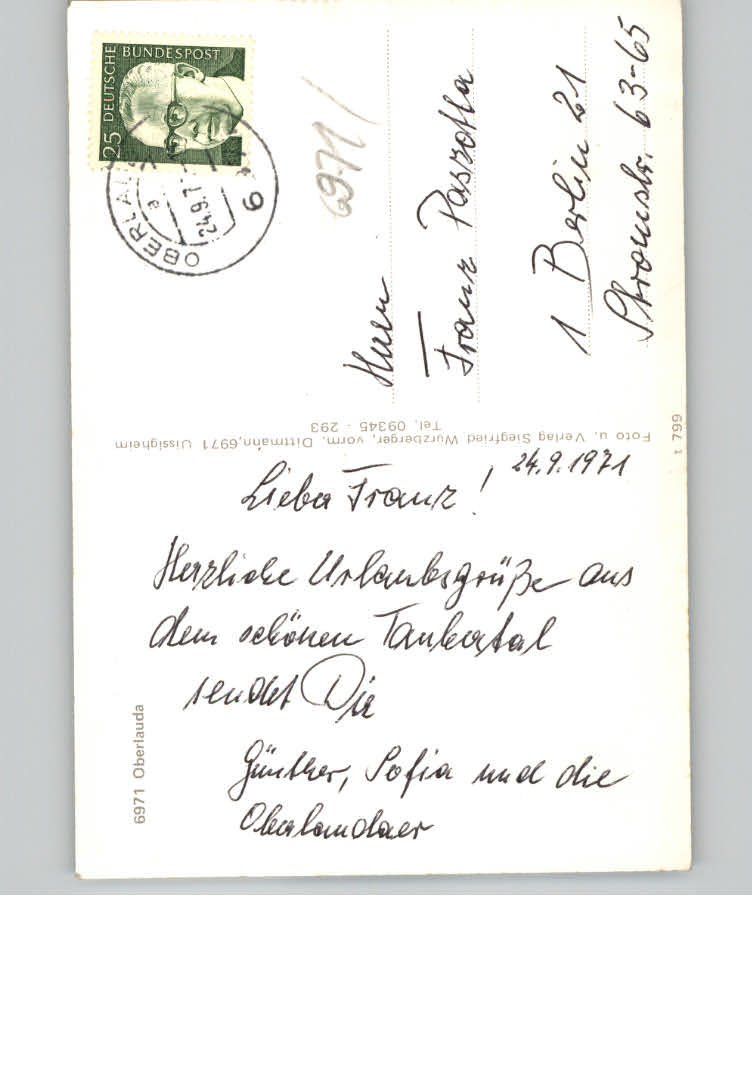 24.9.1971
Lieber Franz!
Herzliche Urlaubsgrüße aus
dem schönen Taubertal
sendet Dir
Günther, Sofia und die
Oberlaudaer
6971 Oberlauda
Foto u. Verlag Siegfried Wurzberger, vorm. Dittmann, 6971 Uissigheim
Tel. 09345 - 293
t 799
DEUTSCHE BUNDESPOST
25
24.9.7
6971
Herrn
Franz Paszotta
1 Berlin 21
Stromstr. 63-65